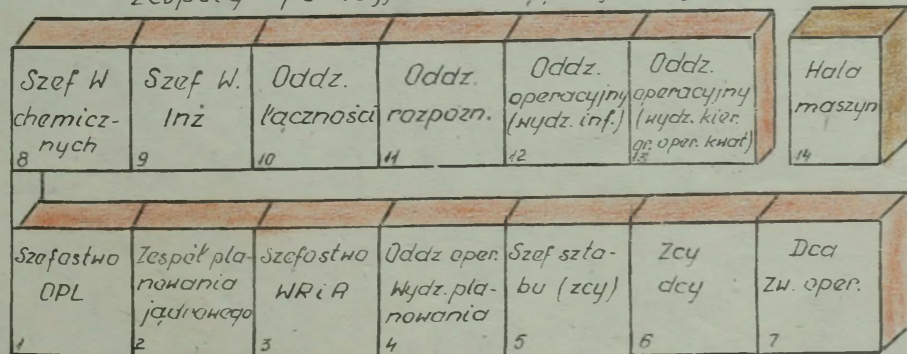 Szef W
chemicz-
nych
8
Szef W.
Inż
9
Oddz.
łączności
10
Oddz.
rozpozn.
11
Oddz.
operacyjny
(wydz. inf.)
12
Oddz.
operacyjny
(wydz. kier.
gr. oper. kwat)
13
Hala
maszyn
14
Szefostwo
OPL
1
Zespół pla-
nowania
jądrowego
2
Szefostwo
WRiA
3
Oddz oper.
Wydz. pla-
nowania
4
Szef szta-
bu (zcy)
5
Zcy
dcy
6
Dca
Zw. oper.
7